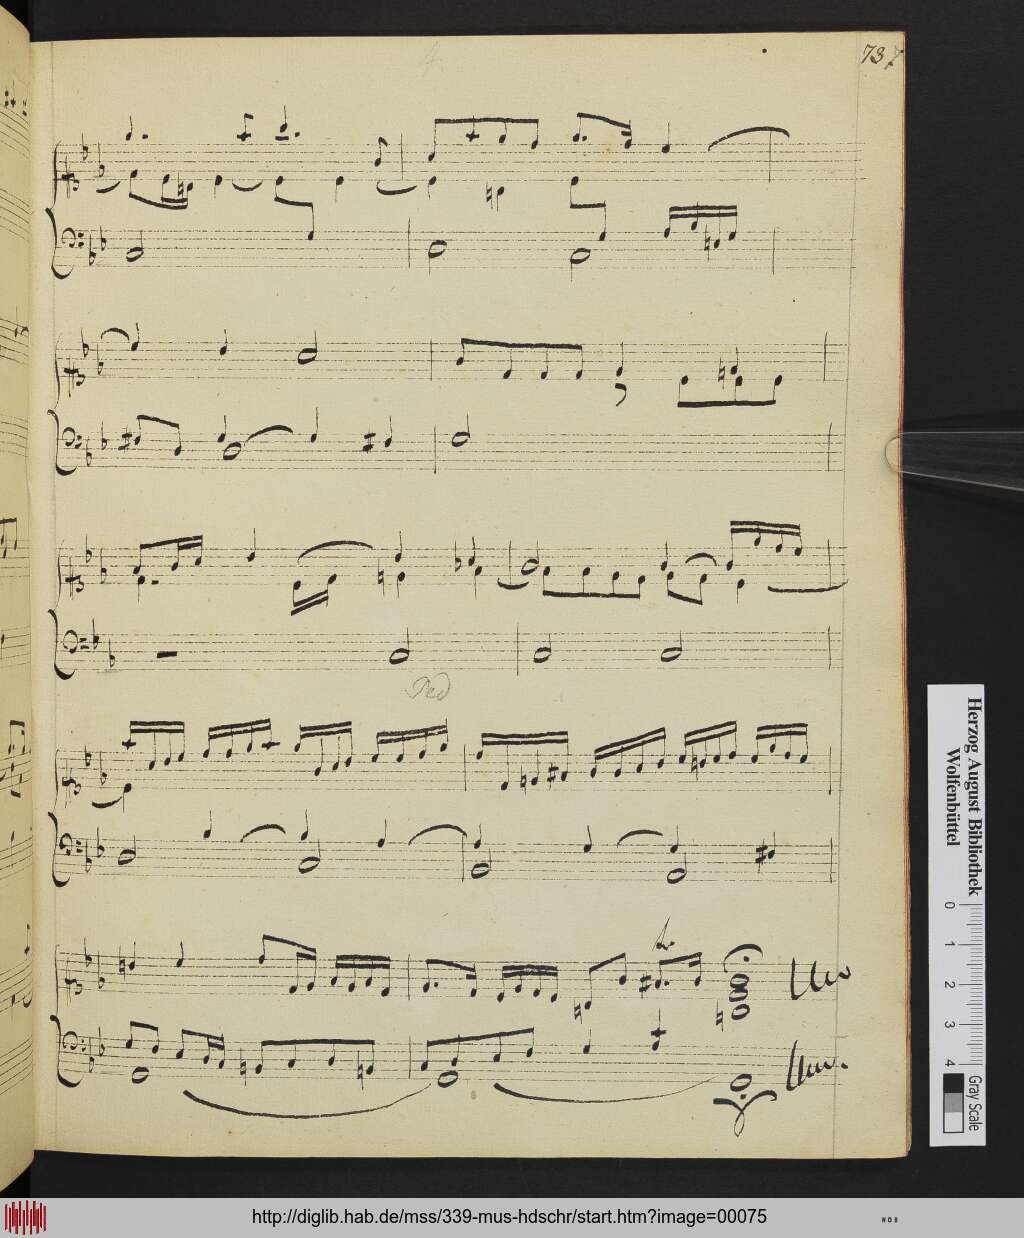 73
Ped
tr
Herzog August Bibliothek
Wolfenbüttel
0 1 2 3 4
Gray Scale
http://diglib.hab.de/mss/339-mus-hdschr/start.htm?image=00075